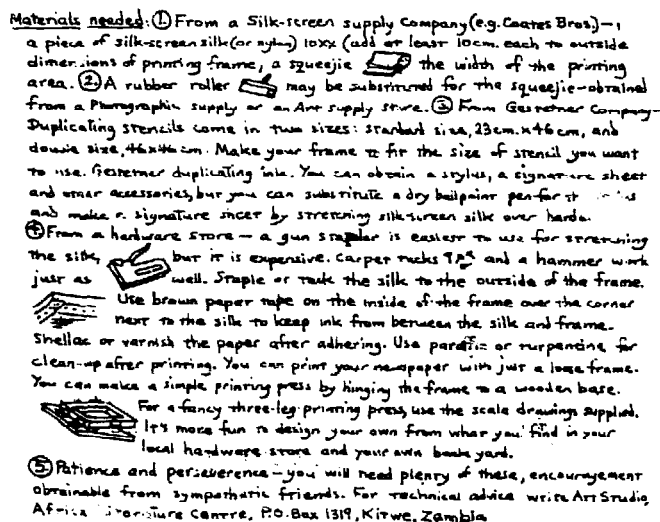 Materials needed: ① From a Silk-screen supply Company (e.g. Coates Bros.) —
a piece of silk-screen silk (or nylon) 10XX (add at least 10cm. each to outside
dimensions of printing frame, a squeejie the width of the printing
area. ② A rubber roller may be substituted for the squeejie-obtained
from a Photographic supply or an Art supply store. ③ From Gestetner Company-
Duplicating stencils come in two sizes: standard size, 23cm. x 46cm, and
double size, 46x46cm. Make your frame to fit the size of stencil you want
to use. Gestetner duplicating ink. You can obtain a stylus, a signature sheet
and other accessories, but you can substitute a dry ballpoint pen for
and make a signature sheet by stretching silk-screen silk over
④ From a hardware store — a gun stapler is easiest to use for stretching
the silk, but it is expensive. Carpet tacks and a hammer work
just as well. Staple or tack the silk to the outside of the frame.
Use brown paper tape on the inside of the frame over the corner
next to the silk to keep ink from between the silk and frame.
Shellac or varnish the paper after adhering. Use parafin or turpentine for
clean-up after printing. You can print your newspaper with just a loose frame.
You can make a simple printing press by hinging the frame to a wooden base.
For a fancy three-leg printing press, use the scale drawings supplied.
It's more fun to design your own from what you find in your
local hardware store and your own back yard.
⑤ Patience and perseverence — you will need plenty of these, encouragement
obtainable from sympathetic friends. For technical advice write Art Studio,
Africa Literature Centre, P.O. Box 1319, Kitwe, Zambia